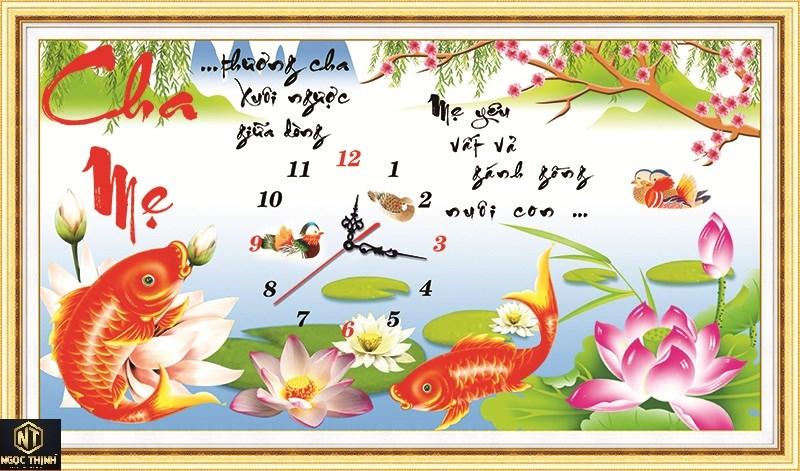 Cha
Mẹ
...thương cha
Xuôi ngược
giữa dòng
Mẹ yêu
vất vả
gánh gồng
nuôi con ...
12
11
1
10
2
9
3
8
4
7
5
6
NT
NGỌC THỊNH